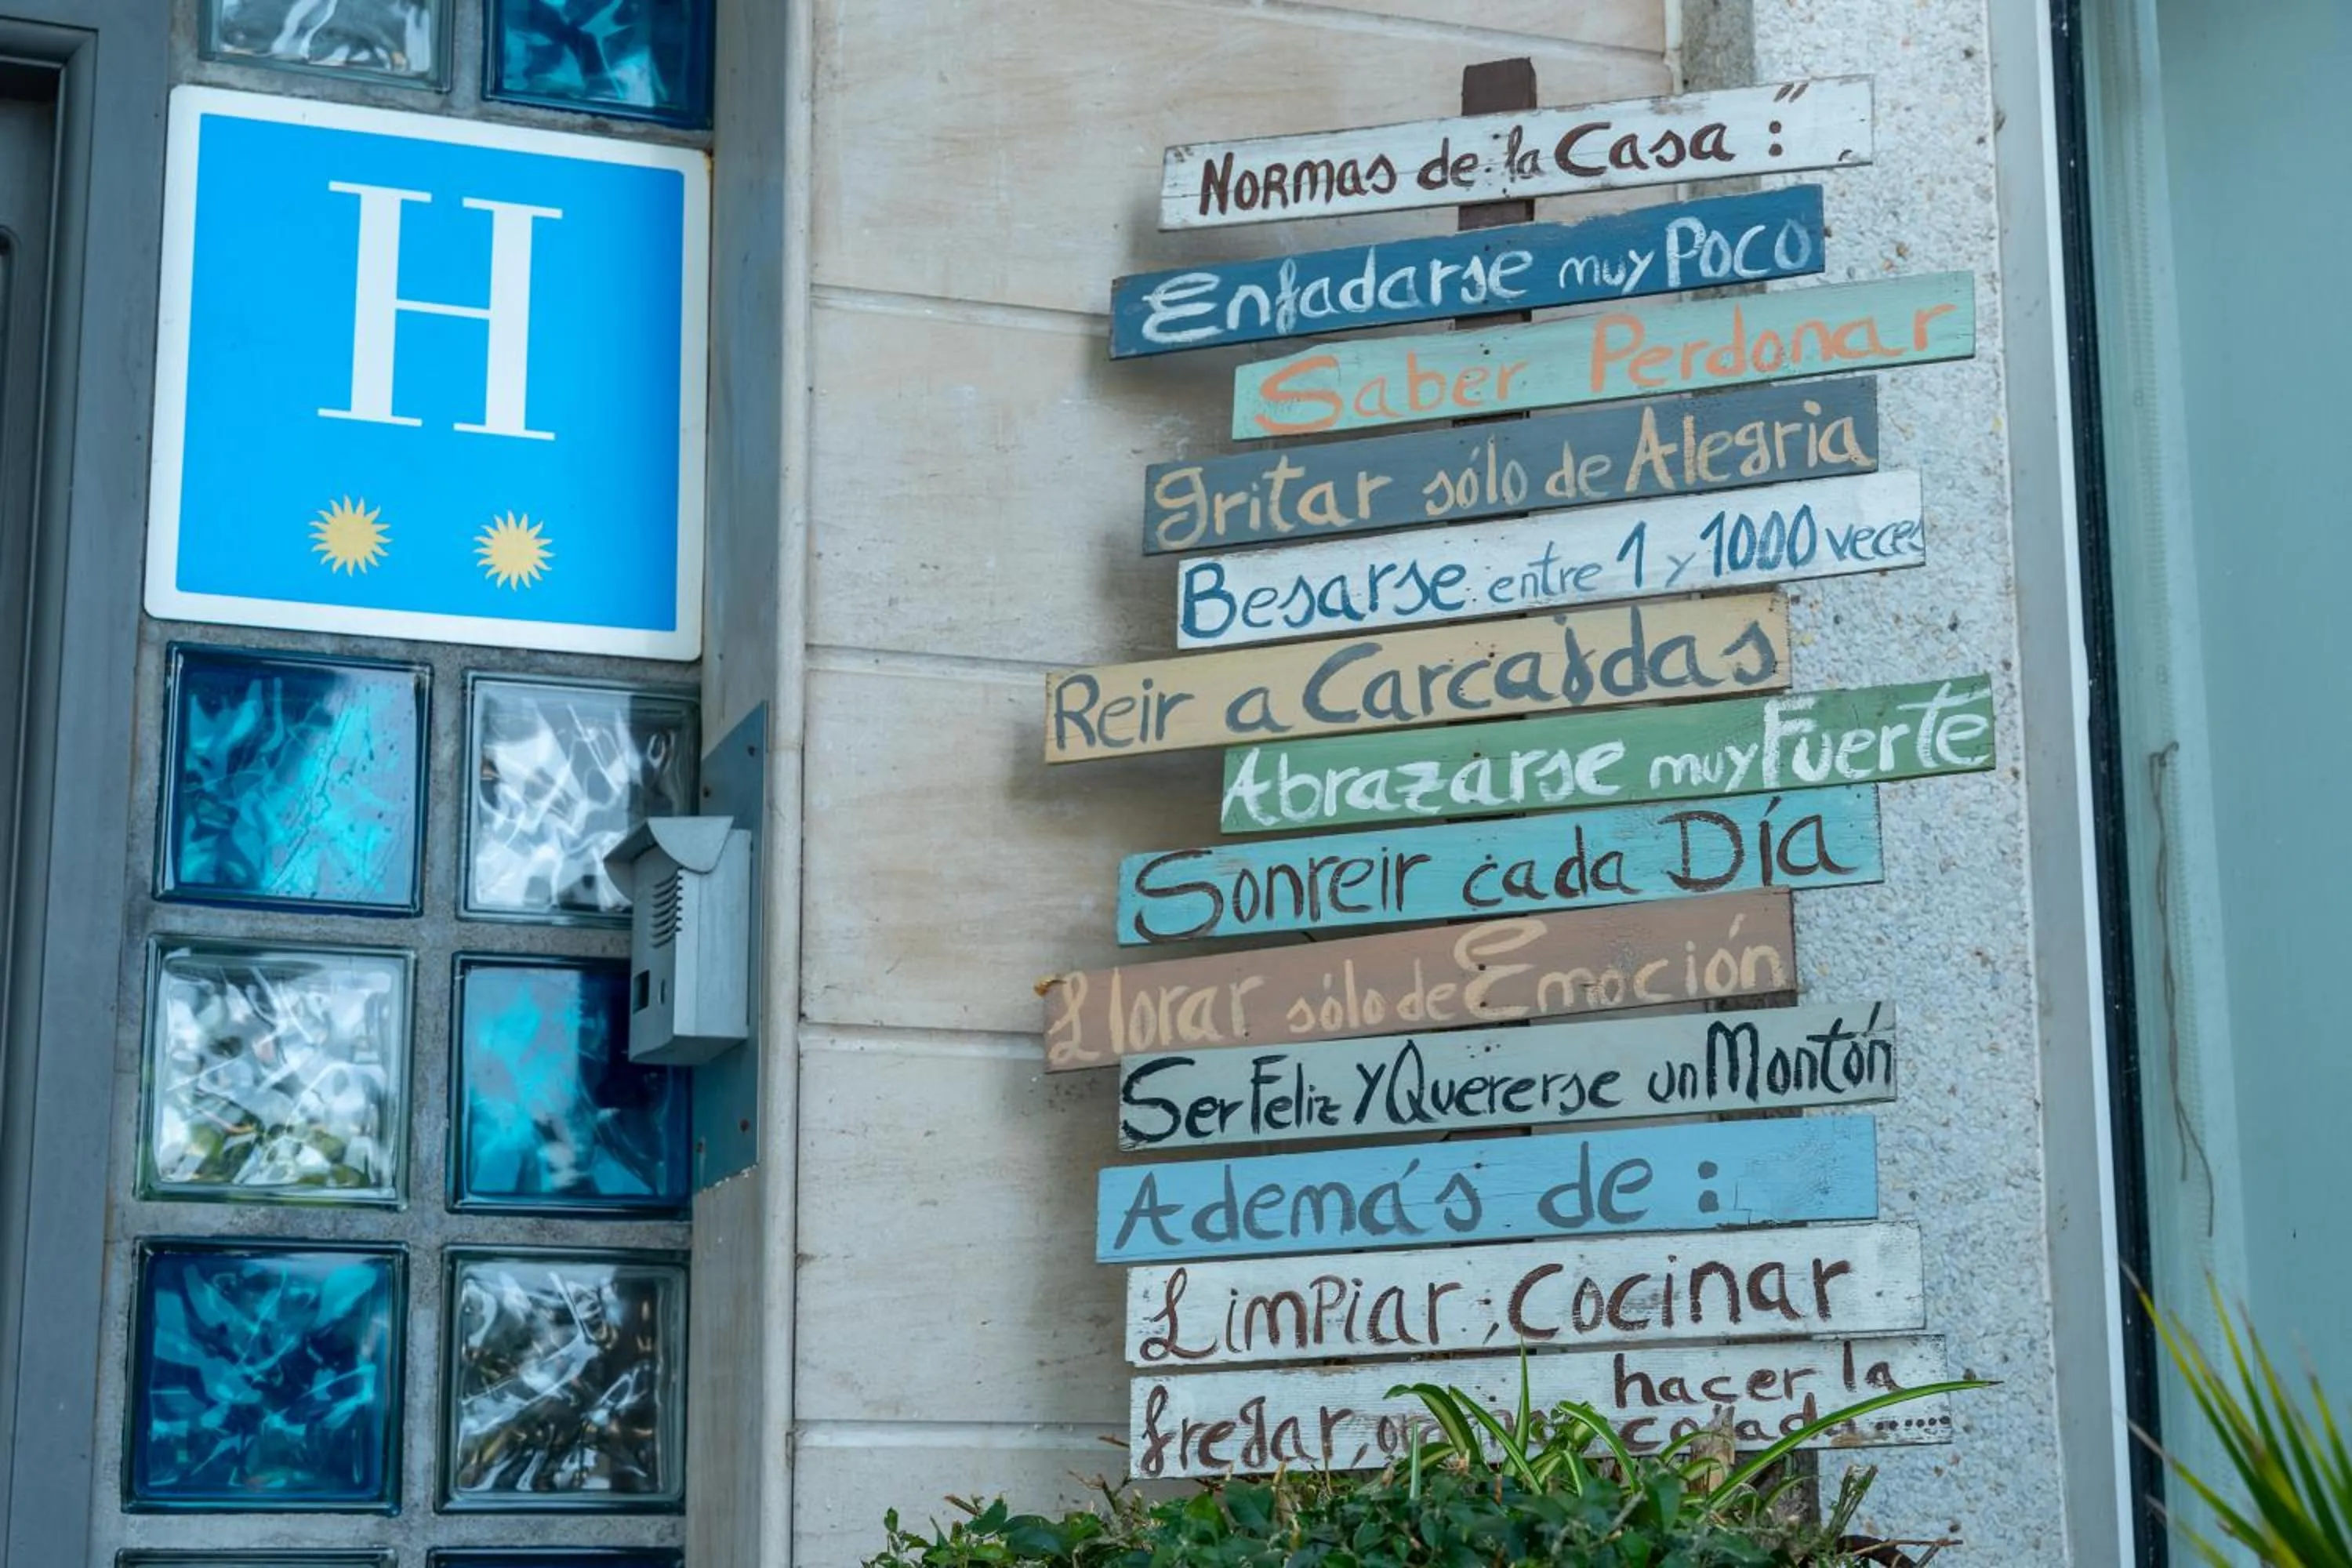 H
Normas de la Casa :
Enfadarse muy Poco
Saber Perdonar
gritar sólo de Alegria
Besarse entre 1 y 1000 veces
Reir a Carcajdas
Abrazarse muy Fuerte
Sonreir cada Día
Llorar sólo de Emoción
Ser Feliz y Quererse un Montón
Además de :
Limpiar, Cocinar
fregar, hacer la
colada.....